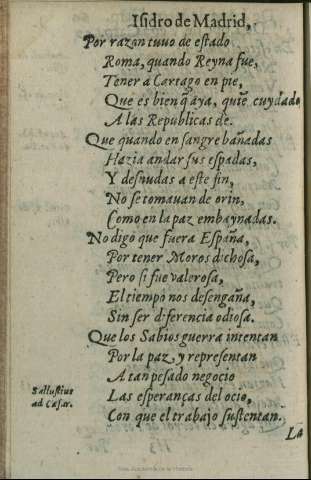 Isidro de Madrid,
Por razon tuuo de estado
Roma, quando Reyna fue,
Tener a Cartago en pie,
Que es bien q̃ aya, quiẽ cuydado
A las Republicas de.
Que quando en sangre bañadas
Hazia andar sus espadas,
Y desnudas a este fin,
No se tomauan de orin,
Como en la paz embaynadas.
No digo que fuera España,
Por tener Moros dichosa,
Pero si fue valerosa,
El tiempo nos desengaña,
Sin ser diferencia odiosa.
Que los Sabios guerra intentan
Por la paz, y representan
A tan pesado negocio
Sallustius
ad Cæsar.
Las esperanças del ocio,
Con que el trabajo sustentan.
La